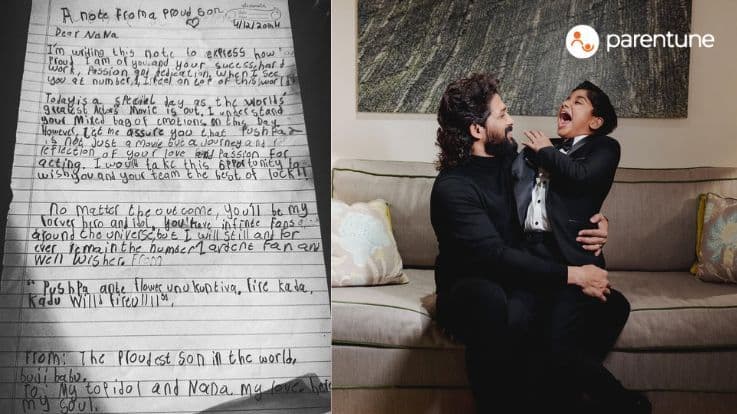 A note from a proud son
4/12/2024
Dear NaNa
I'm writing this note to express how
proud I am of you and your success, hard
work, Passion and dedication. When I see
you at number 1, I feel on top of this world
Today is a special day as the worlds'
greatest Actors Movie is out. I understand
your Mixed bag of emotions on this Day
However, let me assure you that PushPa2
is not Just a movie but a Journey and
reflection of your love and Passion for
acting. I would take this opportunity to
wish you and your team the best of lock!!
No matter the outcome, you'll be my
forever hero and idol. you have infinite fans
around the universe, but I will still and for
ever remain the number 1 ardent fan and
well wisher. From
"PushPa ante flower unukuntiva. fire kada,
Kadu Willd fire!!!!".
From: The Proudest son in the world,
bujji babu.
To: My top idol and NaNa. my love,
my soul.
parentune